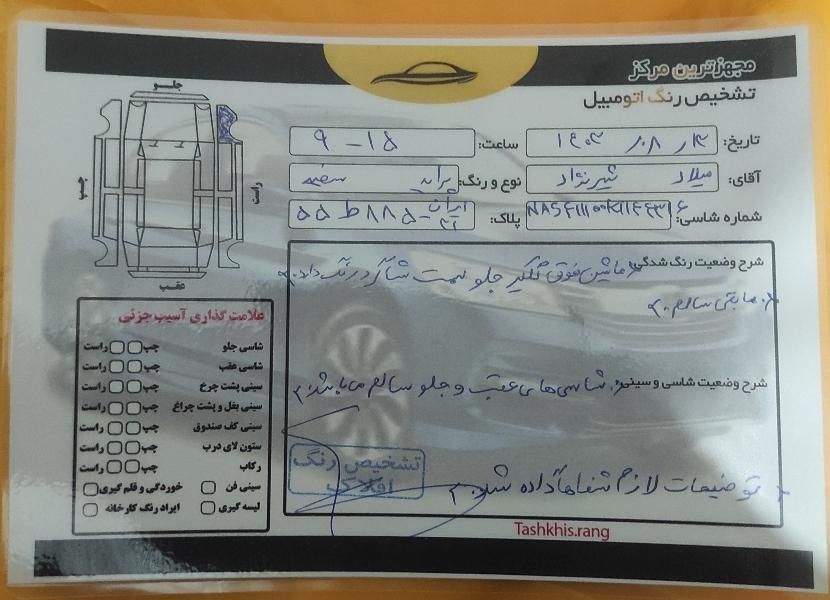 مجهزترین مرکز
تشخیص رنگ اتومبیل
تاریخ: ۱۴۰۳
ساعت: ۹ - ۱۵
آقای: میلاد شیرنژاد
نوع و رنگ: پراید سفید
شماره شاسی:
پلاک: ۵۵ ط ۸۸۵ - ایران
جلو
چپ
راست
عقب
شرح وضعیت رنگ شدگی: ماشین فوق گلگیر جلو سمت شاگرد رنگ دارد.
مابقی سالم.
شرح وضعیت شاسی و سینی: شاسی‌های عقب و جلو سالم می‌باشد.
توضیحات لازم شفاها داده شد.
علامت گذاری آسیب جزئی
شاسی جلو چپ راست
شاسی عقب چپ راست
سینی پشت چرخ چپ راست
سینی بغل و پشت چراغ چپ راست
سینی کف صندوق چپ راست
ستون لای درب چپ راست
رکاب چپ راست
سینی فن خوردگی و قلم گیری
لیسه گیری ایراد رنگ کارخانه
تشخیص رنگ
افلاک
Tashkhis.rang